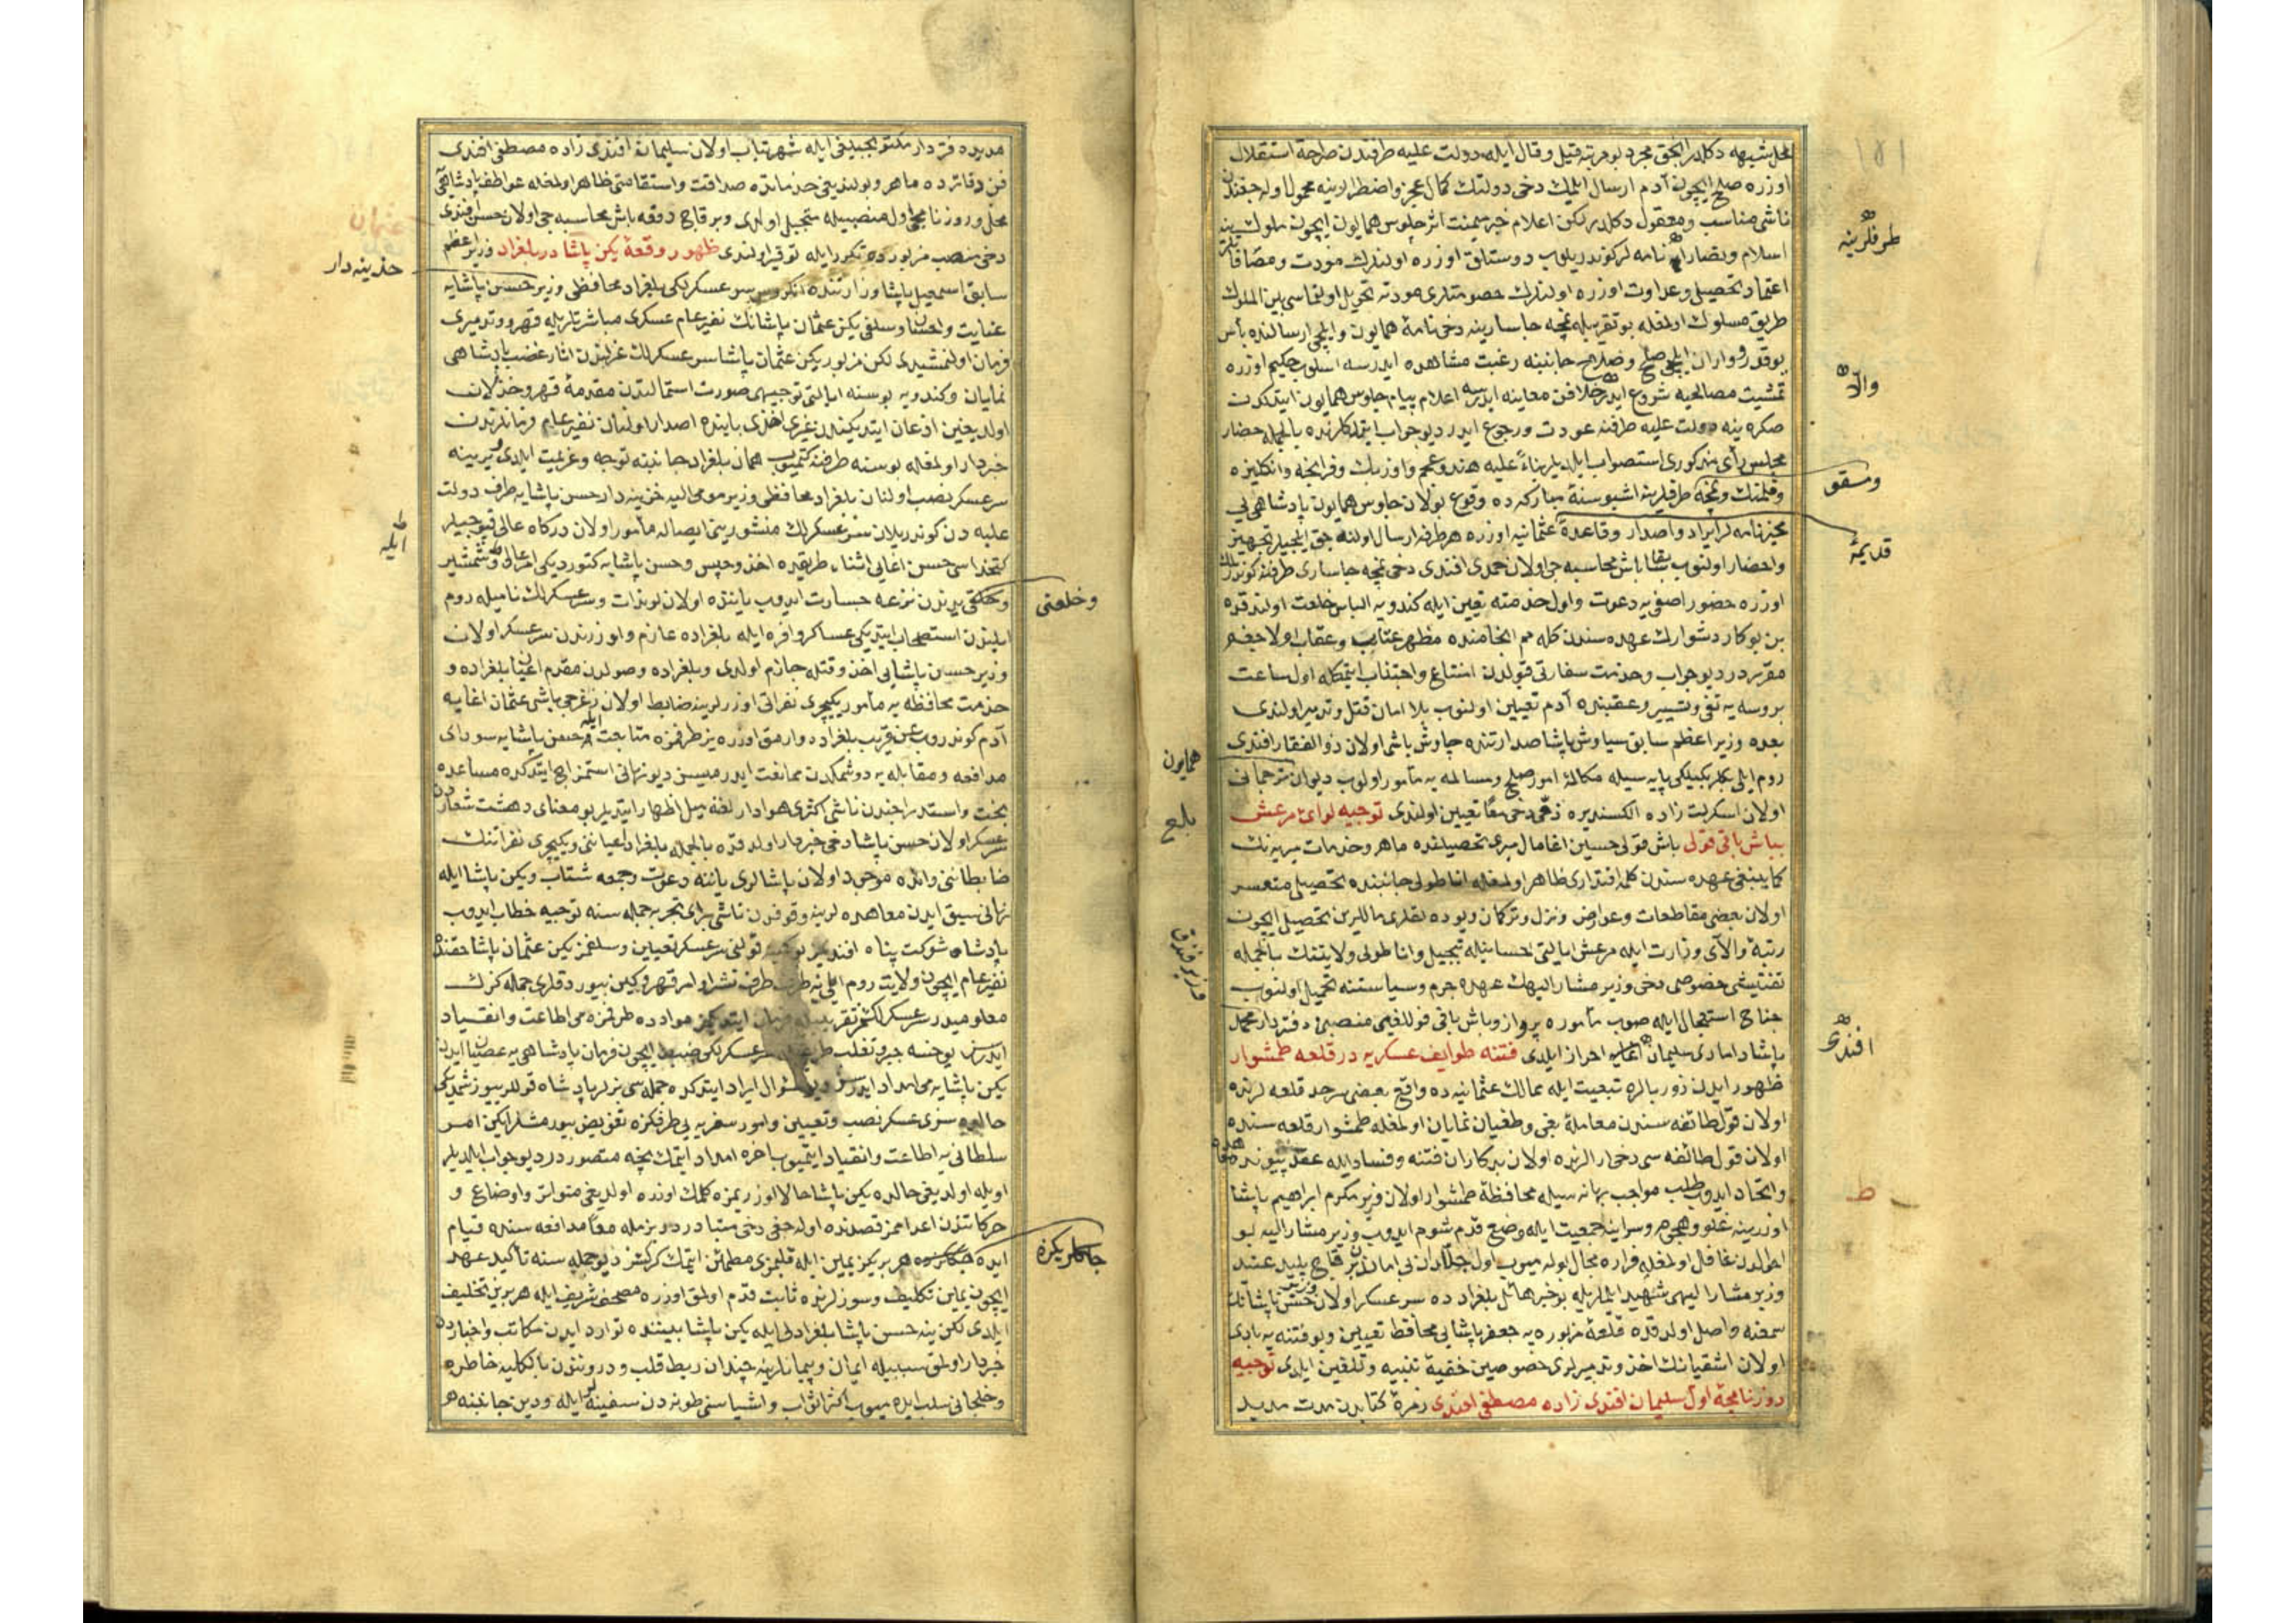 محل شبهه دكلدر انجق مجرد بو مرتبه قيل وقال ايله دولت عليه طرفندن صراحة استقلال
اوزره صلح ايچون آدم ارسال ايتمك دخى دولتك كمال عجز واضطرارينه محمول اوله جغندن
ناشى مناسب ومعقول دكلدر لكن اعلام خبر ميمنت اثر جلوس همايون ايچون ملوك
اسلام ونصارايه نامه لر كوندريلوب دوستلق اوزره اولنلرك مودت ومصافاتلرينه
طرفلرينه
اعتماد تحصيلى وعداوت اوزره اولنلرك خصومتلرى مودته تحويل اولنماسى بين الملوك
طريق مسلوك اولمغله بو تقريبله نمچه جاسارينه دخى نامۀ همايون وايلچى ارسالنده بأس
يوقدر وواران ايلچى صلح وصلاح جانبنه رغبت مشاهده ايدرسه اسلوب حكيم اوزره
والا
تمشيت مصالحه يه شروع ايدر خلافن معاينه ايدرسه اعلام پيام جلوس همايون ايتدكدن
صكره ينه دولت عليه طرفنه عودت ورجوع ايدر ديو جواب ايتدكلرنده بالجمله حضار
مجلس رأى مذكورى استصواب ايلديلر بناءً عليه هند وعجم واوزبك وفرانچه وانكليزه
ومسقو
وفلمنك ونمچه طرفلرينه اشبو سنۀ مباركه ده وقوع بولان جلوس همايون پادشاهى يى
مخبر نامه لر ايراد واصدار وقاعدۀ عثمانيه اوزره هر طرفه ارسال اولنه جق ايلچيلر تجهيز
قديمۀ
واحضار اولنوب سابقا باش محاسبه جى اولان حمدى افندى دخى نمچه جاسارى طرفنه كوندرلمك
اوزره حضور آصفى يه دعوت واول خدمته تعيين ايله كندويه الباس خلعت اولندقده
بن بو كار دشوارك عهده سندن كله مم انجامنده مظهر عتاب وعقاب اولاجغم
مقرردر ديو جواب وخدمت سفارتى قبولدن امتناع واجتناب ايتمكله اول ساعت
بروسه يه نفى وتسيير وعقبنده آدم تعيين اولنوب بلا امان قتل وتدمير اولندى
بعده وزير اعظم سابق سياوش پاشا صدارتنده چاوش باشى اولان ذو الفقار افندى
روم ايلى بكلربكيلكى پايه سيله مكالمۀ امور صلح ومسالمه يه مأمور اولوب ديوان ترجمانى
همايون
اولان اسكرلت زاده الكسندره ذمى دخى معًا تعيين اولندى توجيه لواى مرعش
بباش باقى قولى باش قولى حسين اغا مال ميرى تحصيلنده ماهر وخدمات ميريه نك
كما ينبغى عهده سندن كلمه اقتدارى ظاهر اولمغله اناطولى جانبنده تحصيلى متعسر
اولان بعضى مقاطعات وعوارض ونزل وتركمان ويوده لقلرى ماللرين تحصيل ايچون
رتبۀ والاى وزارت ايله مرعش ايالتى احسانيله تبجيل واناطولى ولايتنك بالجمله
تفتيشى خصوصى دخى وزير مشار اليهك عهدۀ جرم وسياستنه تحميل اولنوب
جناح استعجال ايله صوب مأموره پرواز وباش باقى قوللغى منصبنى دفتردار محمد
پاشا دامادى سليمان اغا احراز ايلدى فتنه طوايف عسكريه در قلعه طمشوار
افندى
ظهور ايدن زوربالره تبعيت ايله ممالك عثمانيه ده واقع بعضى سرحد قلعه لرنده
اولان قول طائفه سندن معاملۀ بغى وطغيان نمايان اولمغله طمشوار قلعه سنده
اولان قول طائفه سى دخى ارالرنده اولان بدكاران فتنه وفساد ايله عقد پيوند
واتحاد ايدوب طلب مواجب بهانه سيله محافظۀ طمشوار اولان وزير مكرم ابراهيم پاشا
اوزرينه غلو وهجوم وسراينه جمعيت ايله وضع قدم شوم ايدوب وزير مشار اليه بو
احوالدن غافل اولمغله فراره مجال بوله ميوب اول جلادان بى اماندن بر قاچ پليد عنيد
وزير مشار اليهى شهيد ايتملريله بو خبر هائل بلغراد ده سرعسكر اولان وزير حسن پاشانك
سمعنه واصل اولدقده قلعۀ مزبوره يه جعفر پاشايى محافظ تعيين وبو فتنه يه بادى
اولان اشقيانك اخذ وتدميرلرى خصوصين خفية تنبيه وتلقين ايلدى توجيه
روزنامچۀ اول سليمان افندى زاده مصطفى افندى زمرۀ كتابدن مدت مديد
مديده دفتردار مكتوبجيلغى ايله شهرتياب اولان سليمان افندى زاده مصطفى افندى
فن دفاترده ماهر وبولنديغى خدماتده صداقت واستقامتى ظاهر اولمغله عواطف پادشاهى
محلى وروزنامچۀ اول منصبيله متجلى اولدى وبر قاچ دفعه باش محاسبه جى اولان حسن افندى
دخى منصب مزبورده تكرر ايله توقير اولندى ظهور وقعۀ يكن پاشا در بلغراد وزير اعظم
سابق اسمعيل پاشا وزارتنده انكروس سرعسكرلكى بلغراد محافظى وزير حسن پاشايه
خزينه دار
عنايت واحسان وسلفى يكن عثمان پاشانك نفير عام عسكرى مباشرتلريله قهر وتدميرى
فرمان اولنمشيدى لكن مزبور يكن عثمان پاشا سرعسكرلك عزلندن آثار غضب پادشاهى
نمايان وكندويه بوسنه ايالتى توجيهى صورت استمالتدن مقدمۀ قهر وخذلان
اولديغين اذعان ايتديكندن غيرى اخذى بابنده اصدار اولنان نفير عام فرمانلرندن
خبردار اولمغله بوسنه طرفنه كتميوب همان بلغراد جانبنه توجه وعزيمت ايلدى ويرينه
سرعسكر نصب اولنان بلغراد محافظى وزير مومى اليه خزينه دار حسن پاشايه طرف دولت
عليه دن كوندريلان سرعسكرلك منشورينى ايصاله مأمور اولان دركاه عالى قپوجيلر
ايله
كتخداسى حسن اغايى اثناء طريقده اخذ وحبس وحسن پاشايه كتوردیكى امر عالى وشمشير
وخلعتى يدندن نزعه جسارت ايدوب ياننده اولان لوندات وسرعسكرلك ناميله روم
وخلعتى
ايلندن استصحاب ايتديكى عساكر وافره ايله بلغراده عازم واوزرندن سرعسكر اولان
وزير حسن پاشايى اخذ وقتله جازم اولدى وبلغراده وصولدن مقدم اعيان بلغراده و
خدمت محافظه يه مأمور يكيچرى نفراتى اوزرلرينه ضابط اولان زغرجى باشى عثمان اغايه
آدم كوندروب عن قريب بلغراده وارمق اوزره يز طرفمزه متابعت ايله حسن پاشايه سوداى
مدافعه ومقابله يه دوشمكدن ممانعت ايدر ميسز ديو نهانى استمزاج ايتدكده مساعده
بخت واستدراجندن ناشى اكثرى هوادارلغنه ميل اظهار ايتديلر بو معناى دهشت شعاردن
سرعسكر اولان حسن پاشا دخى خبردار اولدقده بالجمله بلغراد اعياننى ويكيچرى نفراتنك
ضابطاننى وانده موجود اولان پاشالرى ياننه دعوت وجمعه شتاب ويكن پاشا ايله
نهانى سبق ايدن معاهده لرينه وقوفدن ناشى براى تجربه جمله سنه توجيه خطاب ايدوب
پادشاه شوكت پناه افنديمز بو كمينه قولنى سرعسكر تعيين وسلفمز يكن عثمان پاشا حقنده
نفير عام ايچون ولايت روم ايلى يه طرف طرف نشر اوامر قهر وكين بيوردقلرى جمله كزك
معلوميدر سرعسكرلكمز تقريبيله فرمان ايتديكمز مواد ده طرفمزه مى اطاعت وانقياد
ايدرسز يوخسه جبر وتغلب طريقيله سرعسكرلكى ضبط ايچون فرمان پادشاهى يه عصيان ايدن
يكن پاشايه مى امداد ايدرسز ديو سؤال ايراد ايتدكده جمله سى بزلر پادشاه قوللريوز شمديكى
حالده سزى سرعسكر نصب وتعيين وامور سفريه يى طرفكزه تفويض بيورمشلر ايكن امر
سلطانى يه اطاعت وانقياد ايتميوب آخره امداد ايتمك نيجه متصوردر ديو جواب ايلديلر
اويله اولديغى حالده يكن پاشا حالا اوزريمزه كلمك اوزره اولديغى متواتر واوضاع و
حركاتندن اعداممز قصدنده اوله جغى دخى متبادردر بزمله معًا مدافعه سنده قيام
ايده جككزه هر بريكز يمين ايله قلبمزى مطمئن ايتمك كركسز ديو جمله سنه تأكيد عهد
جككلريكزه
ايچون يمين تكليف وسوزلرنده ثابت قدم اولمق اوزره مصحف شريف ايله هر برين تحليف
ايلدى لكن ينه حسن پاشا بلغرادلى ايله يكن پاشا بيننده توارد ايدن مكاتب واخباردن
خبردار اولمق سببيله ايمان وپيمانلرينه چندان ربط قلب ودروننden بالكليه خاطره
وخلجانى سلب ايده ميوب اكثر اثواب واشياسنى طونه دن سفينه لر ايله ودين جانبنه